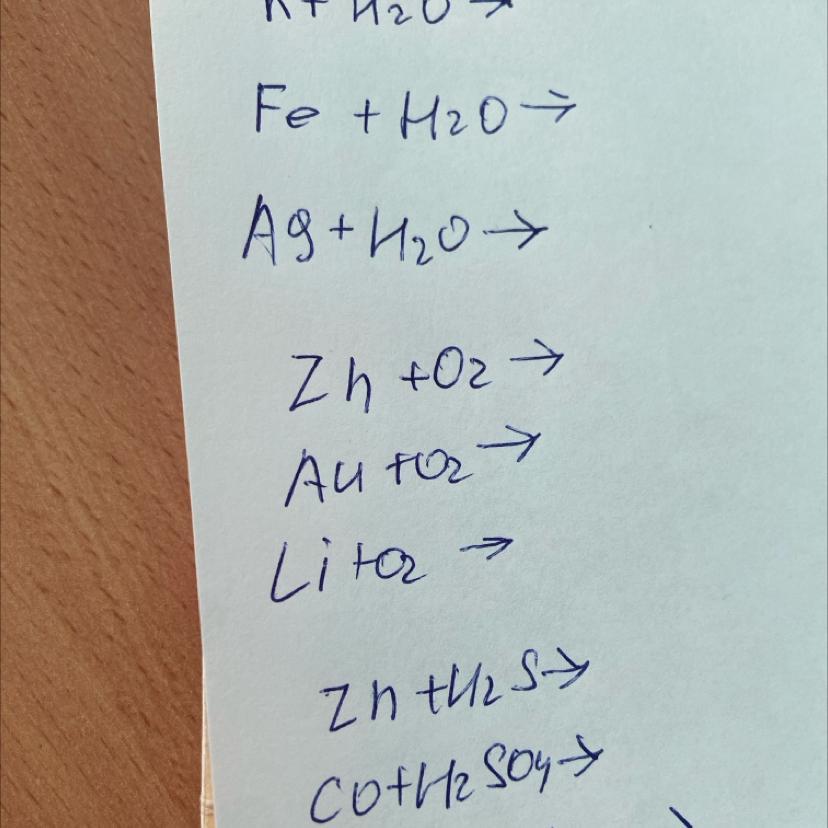 K + H2O →
Fe + H2O →
Ag + H2O →
Zn + O2 →
Au + O2 →
Li + O2 →
Zn + H2S →
CO + H2SO4 →